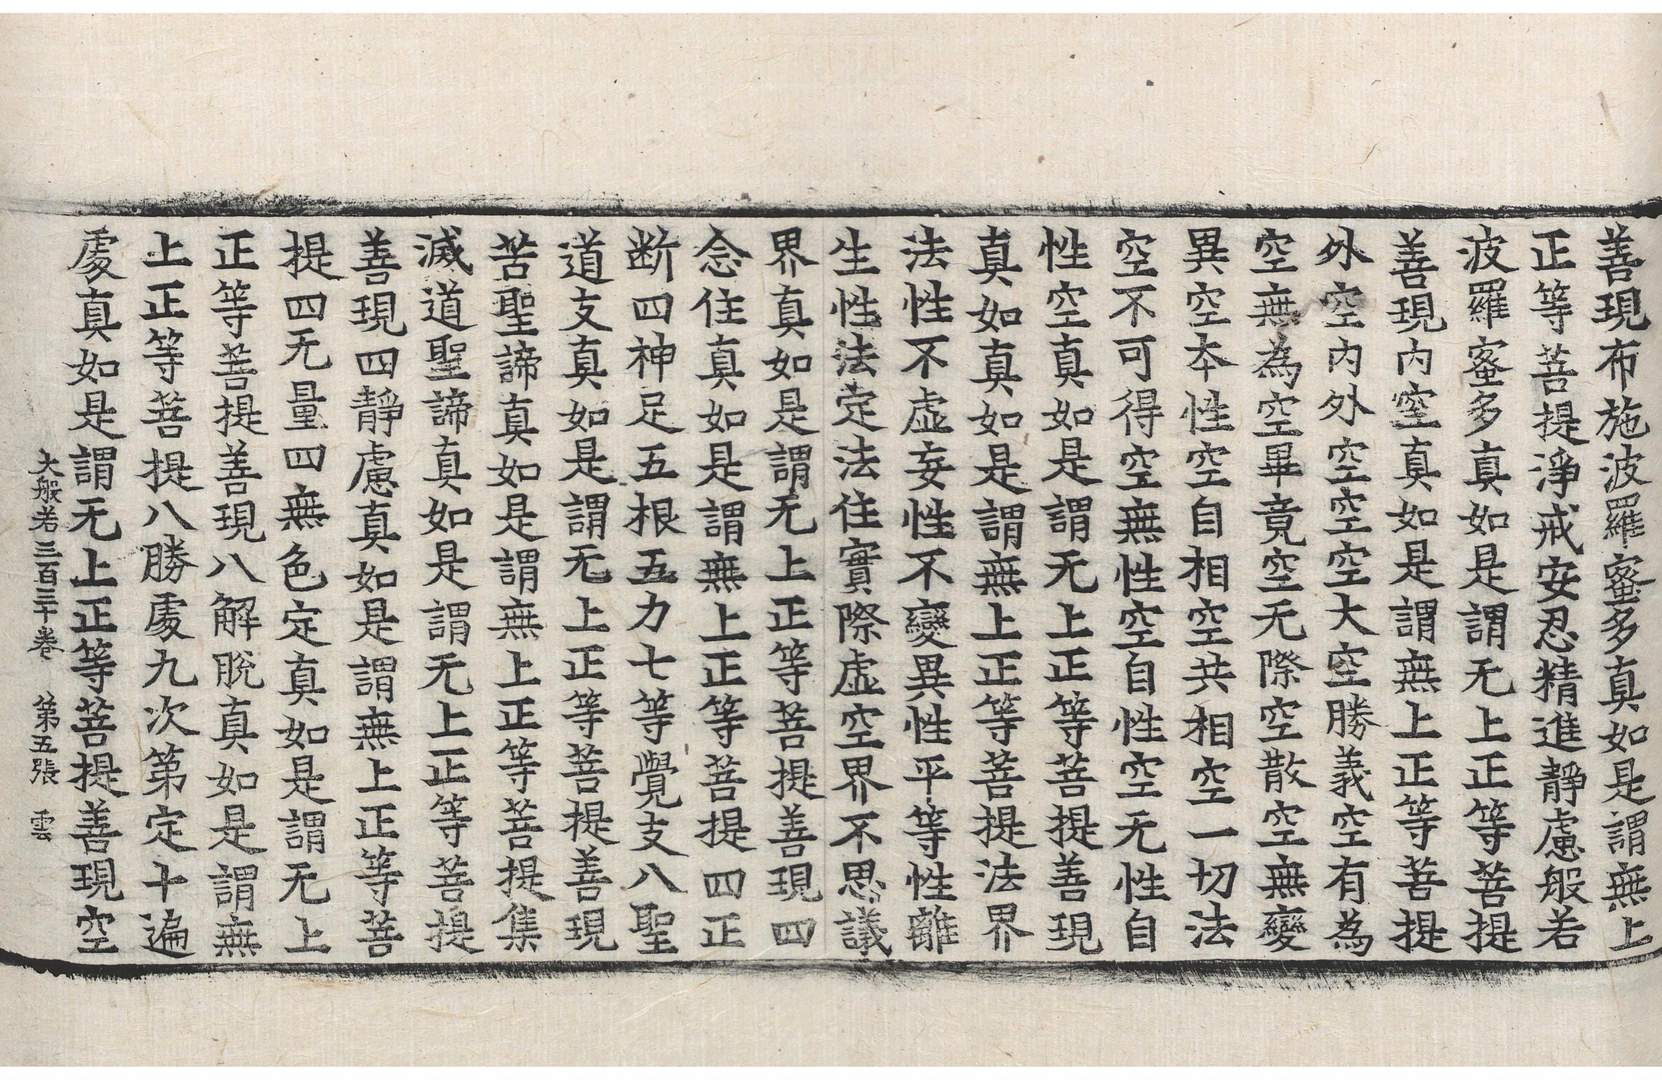 善現布施波羅蜜多真如是謂無上
正等菩提淨戒安忍精進靜慮般若
波羅蜜多真如是謂无上正等菩提
善現内空真如是謂無上正等菩提
外空内外空空空大空勝義空有為
空無為空畢竟空无際空散空無變
異空本性空自相空共相空一切法
空不可得空無性空自性空无性自
性空真如是謂无上正等菩提善現
真如真如是謂無上正等菩提法界
法性不虛妄性不變異性平等性離
生性法定法住實際虛空界不思議
界真如是謂无上正等菩提善現四
念住真如是謂無上正等菩提四正
断四神足五根五力七等覺支八聖
道支真如是謂无上正等菩提善現
苦聖諦真如是謂無上正等菩提集
滅道聖諦真如是謂无上正等菩提
善現四靜慮真如是謂無上正等菩
提四无量四無色定真如是謂无上
正等菩提善現八解脫真如是謂無
上正等菩提八勝處九次第定十遍
處真如是謂无上正等菩提善現空
大般若三百三十卷 第五張 雲